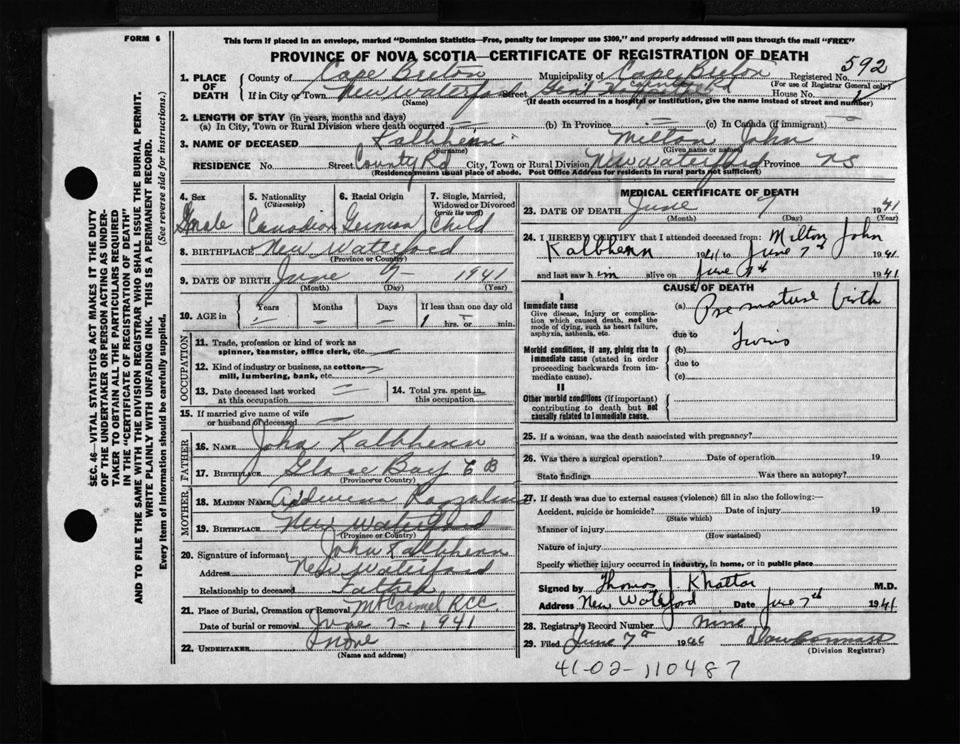 FORM 6
This form if placed in an envelope, marked "Dominion Statistics—Free, penalty for improper use $300," and properly addressed will pass through the mail "FREE"
PROVINCE OF NOVA SCOTIA—CERTIFICATE OF REGISTRATION OF DEATH
1. PLACE OF DEATH County of Cape Breton Municipality of Cape Breton Registered No. 592
(For use of Registrar General only)
If in City or Town New Waterford Street Gen'l House No.
(Name) (If death occurred in a hospital or institution, give the name instead of street and number)
2. LENGTH OF STAY (in years, months and days)
(a) In City, Town or Rural Division where death occurred — (b) In Province — (c) In Canada (if immigrant) —
3. NAME OF DECEASED Kalbhenn Milton John
(Surname) (Given name or names)
RESIDENCE No. Street County Rd City, Town or Rural Division New Waterford Province NS
(Residence means usual place of abode. Post Office Address for residents in rural parts not sufficient)
4. Sex male
5. Nationality (Citizenship) Canadian
6. Racial Origin German
7. Single, Married, Widowed or Divorced (write the word) Child
8. BIRTHPLACE New Waterford
(Province or Country)
9. DATE OF BIRTH June 7 1941
(Month) (Day) (Year)
10. AGE in Years Months Days If less than one day old
— — — 1 hrs. or min.
OCCUPATION
11. Trade, profession or kind of work as spinner, teamster, office clerk, etc. —
12. Kind of industry or business, as cotton-mill, lumbering, bank, etc. —
13. Date deceased last worked at this occupation —
14. Total yrs. spent in this occupation
15. If married give name of wife or husband of deceased —
FATHER
16. NAME John Kalbhenn
17. BIRTHPLACE Glace Bay C B
(Province or Country)
MOTHER
18. MAIDEN NAME
19. BIRTHPLACE New Waterford
(Province or Country)
20. Signature of informant John Kalbhenn
Address New Waterford
Relationship to deceased Father
21. Place of Burial, Cremation or Removal Mt Carmel RCC
Date of burial or removal June 7 - 1941
22. UNDERTAKER None
(Name and address)
MEDICAL CERTIFICATE OF DEATH
23. DATE OF DEATH June 7 1941
(Month) (Day) (Year)
24. I HEREBY CERTIFY that I attended deceased from: Milton John
Kalbhenn 1941 to June 7th 1941
and last saw him alive on June 7th 1941
CAUSE OF DEATH
I
Immediate cause
Give disease, injury or complication which caused death, not the mode of dying, such as heart failure, asphyxia, asthenia, etc.
(a) Premature birth
due to Twins
Morbid conditions, if any, giving rise to immediate cause (stated in order proceeding backwards from immediate cause).
(b)
due to
(c)
II
Other morbid conditions (if important) contributing to death but not causally related to immediate cause.
25. If a woman, was the death associated with pregnancy?
26. Was there a surgical operation? Date of operation 19
State findings Was there an autopsy?
27. If death was due to external causes (violence) fill in also the following:—
Accident, suicide or homicide? Date of injury 19
(State which)
Manner of injury
(How sustained)
Nature of injury
Specify whether injury occurred in industry, in home, or in public place
Signed by Thomas J. Khattar M.D.
Address New Waterford Date June 7th 1941
28. Registrar's Record Number nine
29. Filed June 7th 19
(Division Registrar)
41-02-110487
SEC. 46—VITAL STATISTICS ACT MAKES IT THE DUTY
OF THE UNDERTAKER OR PERSON ACTING AS UNDER-
TAKER TO OBTAIN ALL THE PARTICULARS REQUIRED
IN THE "CERTIFICATE OF REGISTRATION OF DEATH"
AND TO FILE THE SAME WITH THE DIVISION REGISTRAR WHO SHALL ISSUE THE BURIAL PERMIT.
WRITE PLAINLY WITH UNFADING INK. THIS IS A PERMANENT RECORD.
Every item of information should be carefully supplied. (See reverse side for instructions.)